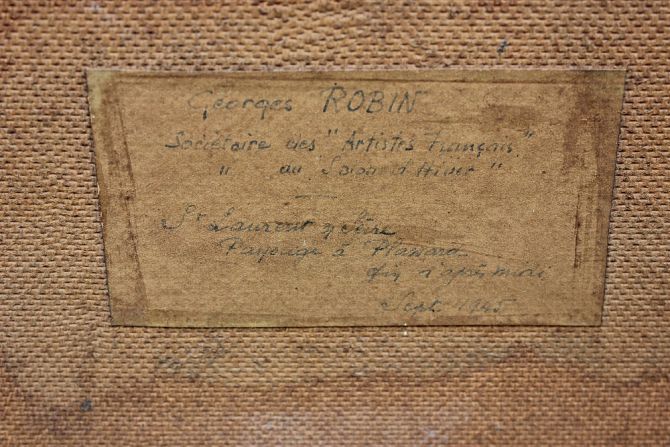 Georges ROBIN
Sociétaire des "Artistes Français"
" au Salon d'Hiver "
St Laurent
Paysage à
d'après midi
Sept 1945